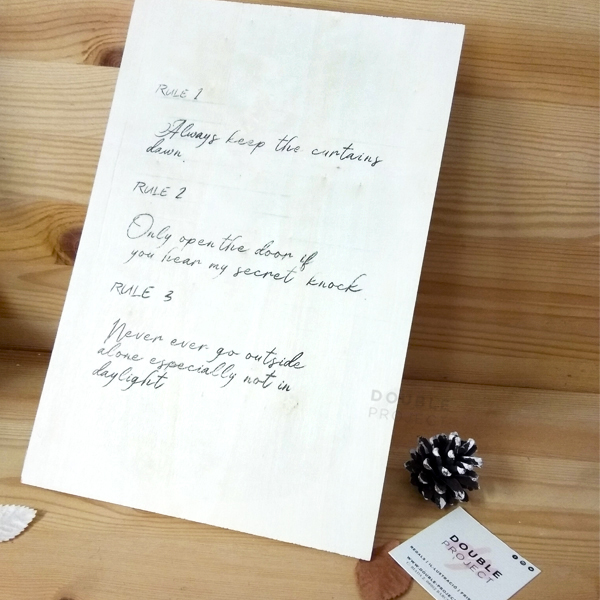 RULE 1
Always keep the curtains
down.
RULE 2
Only open the door if
you hear my secret knock
RULE 3
Never ever go outside
alone especially not in
daylight
DOUBLE
PROJECT
DOUBLE
PROJECT